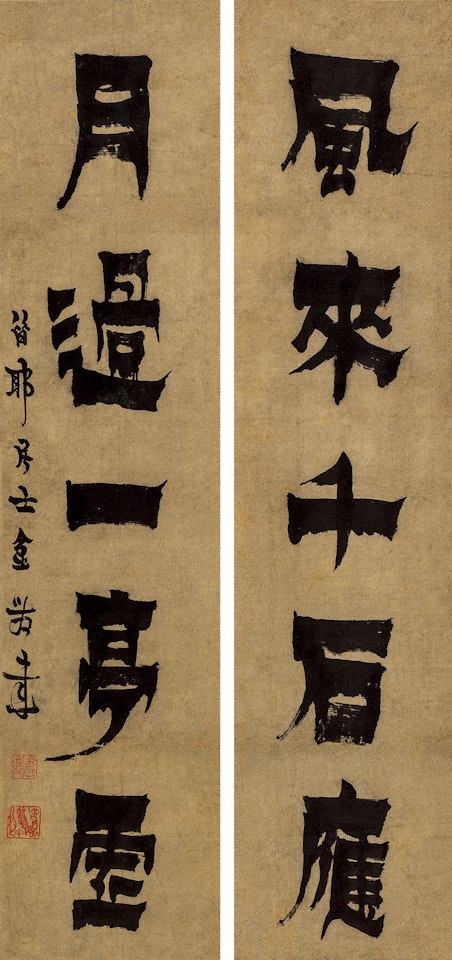 風來千石應
月過一亭虛
昔耶居士金農書